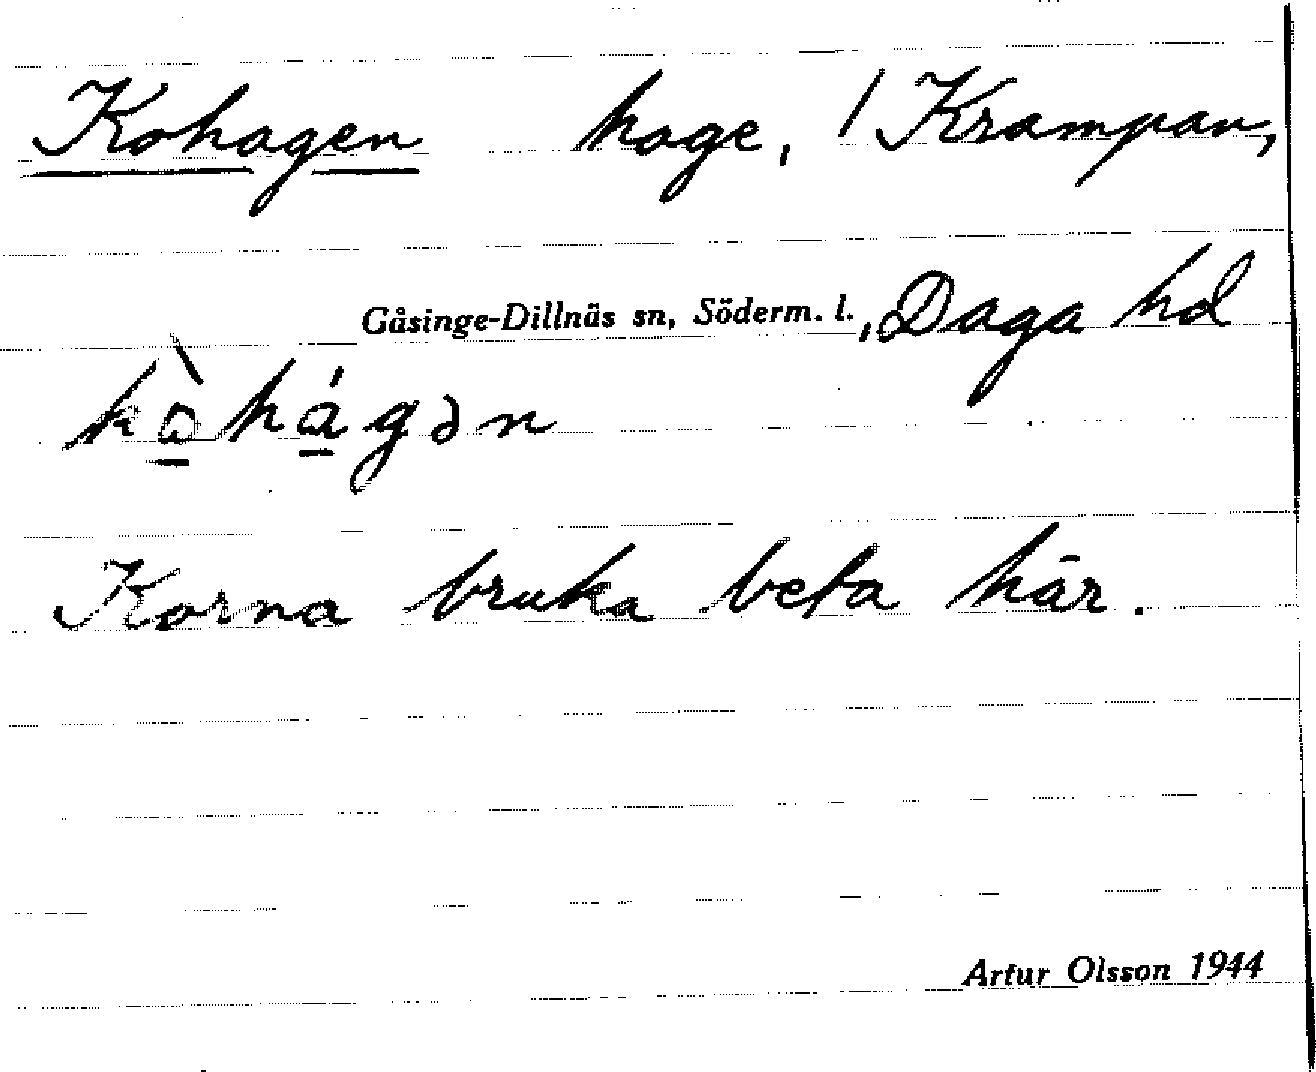 Kohagen hage, / Krampan,
Gåsinge-Dillnäs sn, Söderm. l., Daga hd
kò̱há̱gən
Korna bruka beta här.
Artur Olsson 1944